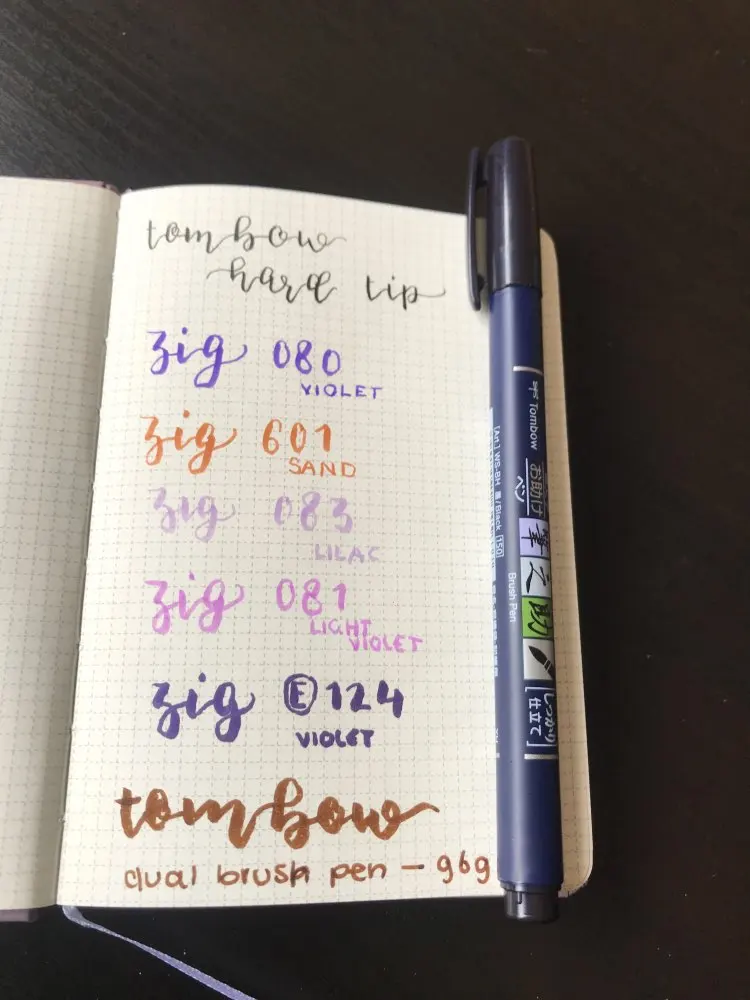 tombow
hard tip
zig 080
VIOLET
zig 601
SAND
zig 083
LILAC
zig 081
LIGHT
VIOLET
zig E 124
VIOLET
tombow
dual brush pen — 969
Tombow
お助け
ペン
筆之助
しっかり
仕立て
[Art.] WS-BH 黒/Black [150]
Brush Pen